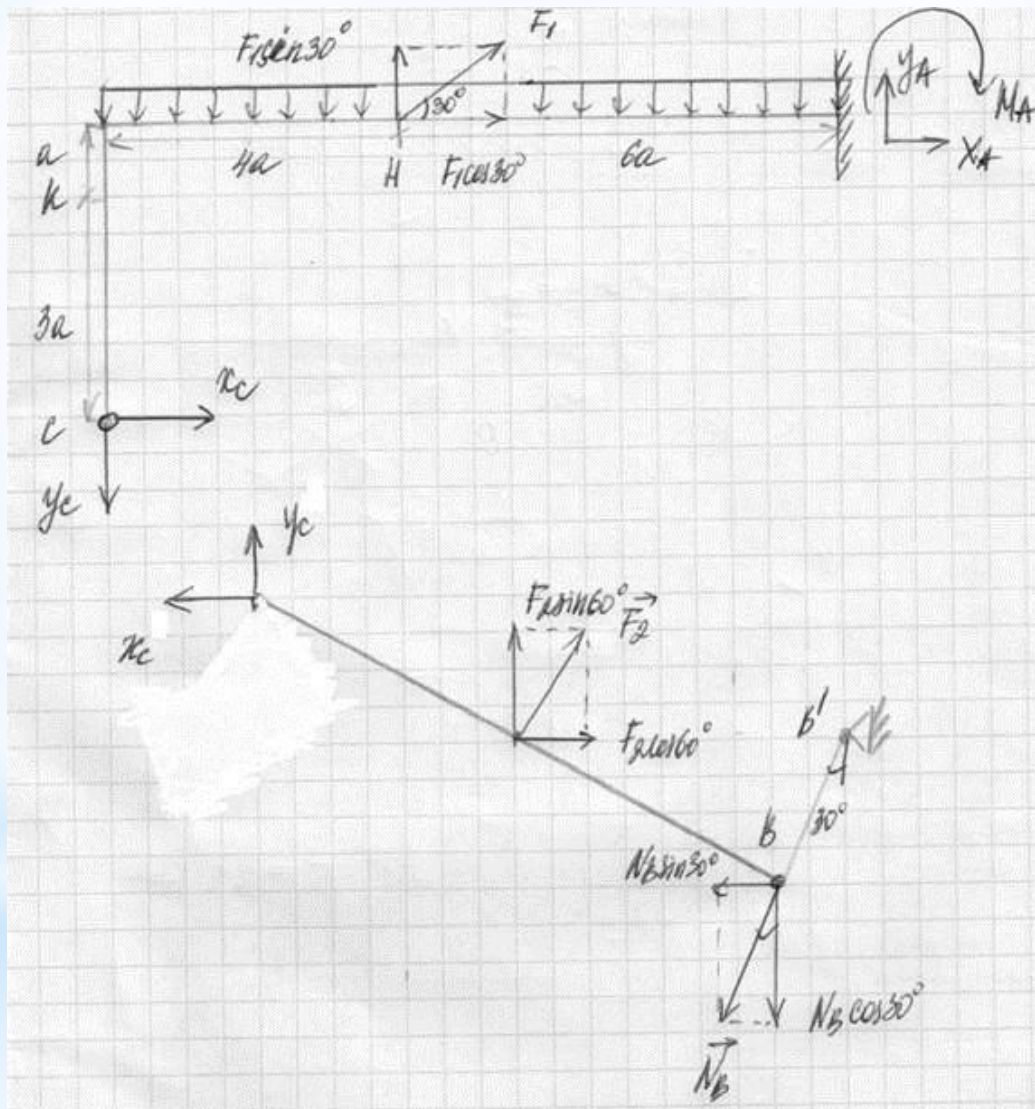 F₁sin30°
F₁
30°
Y_A
M_A
X_A
a
4a
H
F₁cos30°
6a
K
3a
x_C
C
y_C
y_C
x_C
F₂sin60°
F₂
F₂cos60°
B'
30°
B
N_B sin30°
N_B cos30°
N_B